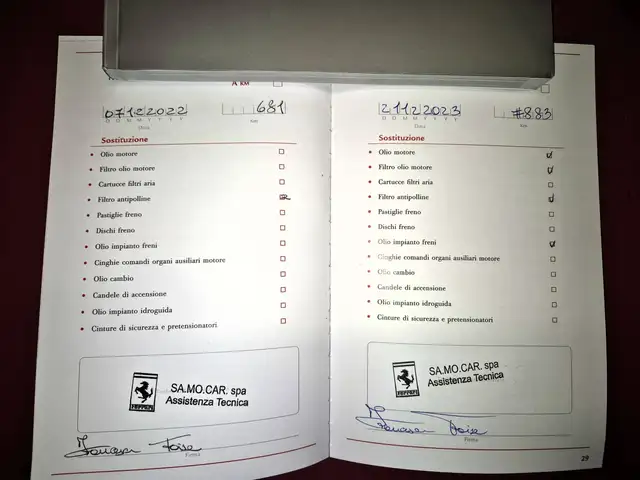 A KM
07122022
681
D D M M Y Y Y Y
Data
KM
Sostituzione
• Olio motore
• Filtro olio motore
• Cartucce filtri aria
• Filtro antipolline
• Pastiglie freno
• Dischi freno
• Olio impianto freni
• Cinghie comandi organi ausiliari motore
• Olio cambio
• Candele di accensione
• Olio impianto idroguida
• Cinture di sicurezza e pretensionatori
Ferrari
SA.MO.CAR. spa
Assistenza Tecnica
Firma
21122023
#883
D D M M Y Y Y Y
Data
KM
Sostituzione
• Olio motore
• Filtro olio motore
• Cartucce filtri aria
• Filtro antipolline
• Pastiglie freno
• Dischi freno
• Olio impianto freni
• Cinghie comandi organi ausiliari motore
• Olio cambio
• Candele di accensione
• Olio impianto idroguida
• Cinture di sicurezza e pretensionatori
Ferrari
SA.MO.CAR. spa
Assistenza Tecnica
Firma
29